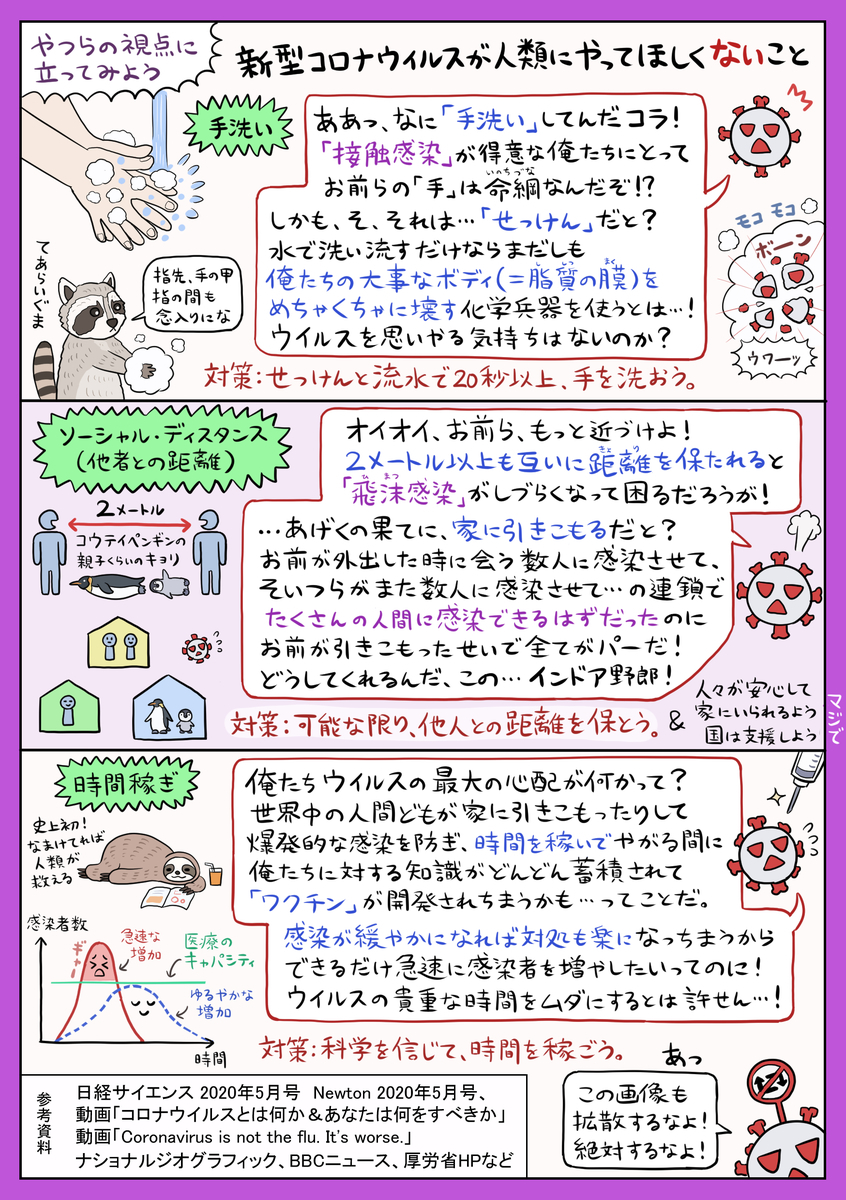 やつらの視点に
立ってみよう
新型コロナウィルスが人類にやってほしくないこと
手洗い
ああっ、なに「手洗い」してんだコラ!
「接触感染」が得意な俺たちにとって
お前らの「手」は命綱なんだぞ!?
いのちづな
しかも、そ、それは…「せっけん」だと?
水で洗い流すだけならまだしも
俺たちの大事なボディ(=脂質の膜)を
ししつ まく
めちゃくちゃに壊す化学兵器を使うとは…!
ウイルスを思いやる気持ちはないのか?
モコ モコ
ボーン
ウワーッ
てあらいぐま
指先、手の甲
指の間も
念入りにな
対策:せっけんと流水で20秒以上、手を洗おう。
ソーシャル・ディスタンス
(他者との距離)
2メートル
コウテイペンギンの
親子くらいのキョリ
オイオイ、お前ら、もっと近づけよ!
2メートル以上も互いに距離を保たれると
きょり
「飛沫感染」がしづらくなって困るだろうが!
ひまつ
…あげくの果てに、家に引きこもるだと?
お前が外出した時に会う数人に感染させて、
そいつらがまた数人に感染させて…の連鎖で
たくさんの人間に感染できるはずだったのに
お前が引きこもったせいで全てがパーだ!
どうしてくれるんだ、この…インドア野郎!
対策:可能な限り、他人との距離を保とう。
&人々が安心して
家にいられるよう
国は支援しよう
マジで
時間稼ぎ
史上初!
なまけてれば
人類が
救える
俺たちウイルスの最大の心配が何かって?
世界中の人間どもが家に引きこもったりして
爆発的な感染を防ぎ、時間を稼いでやがる間に
俺たちに対する知識がどんどん蓄積されて
「ワクチン」が開発されちまうかも…ってことだ。
感染が緩やかになれば対処も楽になっちまうから
できるだけ急速に感染者を増やしたいってのに!
ウイルスの貴重な時間をムダにするとは許せん…!
感染者数
ギャー
急速な
増加
医療の
キャパシティ
ゆるやかな
増加
時間
対策:科学を信じて、時間を稼ごう。
参考資料
日経サイエンス 2020年5月号 Newton 2020年5月号、
動画「コロナウイルスとは何か&あなたは何をすべきか」
動画「Coronavirus is not the flu. It's worse.」
ナショナルジオグラフィック、BBCニュース、厚労省HPなど
あっ
この画像も
拡散するなよ!
絶対するなよ!